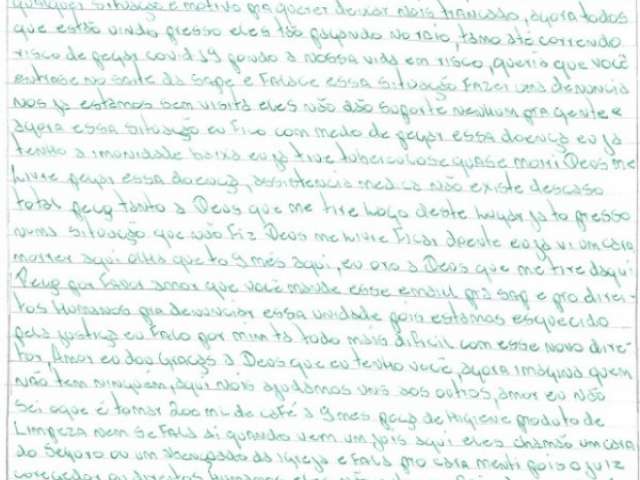 qualquer situação e motivo pra querer deixar nois trancado, agora todos
que estão vindo presso eles tão colocando no raio, tamo até correndo
risco de pegar covid 19 pondo a nossa vida em risco, queria que você
entrase no saite da sape e falace essa situação fazer uma denuncia
nos ja estamos sem visita eles não dão suporte nenhum pra gente e
agora essa situação eu fico com medo de pegar essa doença eu ja
tenho a imonidade baixa eu ja tive tuberculose quase morri Deus me
livre pegar essa doença, assistencia medica não existe descaso
total peço tanto a Deus que me tire logo deste lugar ja to presso
numa situação que não fiz Deus me livre ficar doente eu ja vi um cara
morrer aqui olha que to 9 mês aqui, eu oro a Deus que me tire daqui
Peço por favor amor que você mande esse email pra sap e pro direi-
tos Humanos pra denunciar essa unidade pois estamos esquecido
pela justiça eu falo por mim ta todo mais dificil com esse novo dire-
tor, Amor eu dou graças a Deus que eu tenho você, agora imagina quem
não tem ninguém, aqui nois ajudamos uns aos outros, amor eu não
sei oque é tomar 200 ml de café a 9 mes peça de Higiene produto de
Limpeza nem se fala ai quando vem um jois aqui eles chamão um cara
do seguro ou um abençoado da igreja e fala pro cara menti pois o juiz
coregedor ou direitos humanos eles não